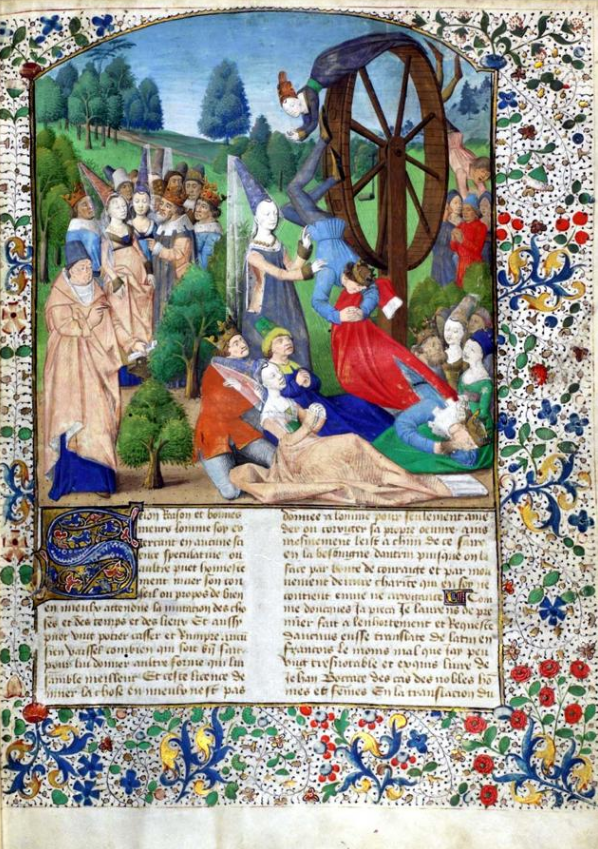 Selon raison et bonnes
meurs lomme soy ex
ercant en aucune sci
ence speculative ou
aultre puet honneste
ment muer son con
seil ou propos de bien
en mieulx attendue la mutation des cho
ses et des temps et des lieux Et aussy
puet ung potier casser et rompre aucu
ns vaisseaulx combien quil soit bien fais
pour lui donner aultre forme qui lui
samble meilleur Et ceste licence de
muer la chose en mieulx nest pas
donnee a lomme pour seulement amen
der ou corrigier sa propre oeuvre ains
mesmement leist a chun de ce faire
en la besoingne daultrui puisque on la
face par bonte de couraige et par mou
vement de vraye charite qui en soy ne
contient envie ne arrogance Com
me doncques ja pieca Je laurens de pre
mier fait a lenhortement et requeste
daucuns eusse translate de latin en
francois le moins mal que soy peu
ung tresnotable et exquis livre de
Jehan Bocace des cas des nobles ho
mes et femes En la translacion du